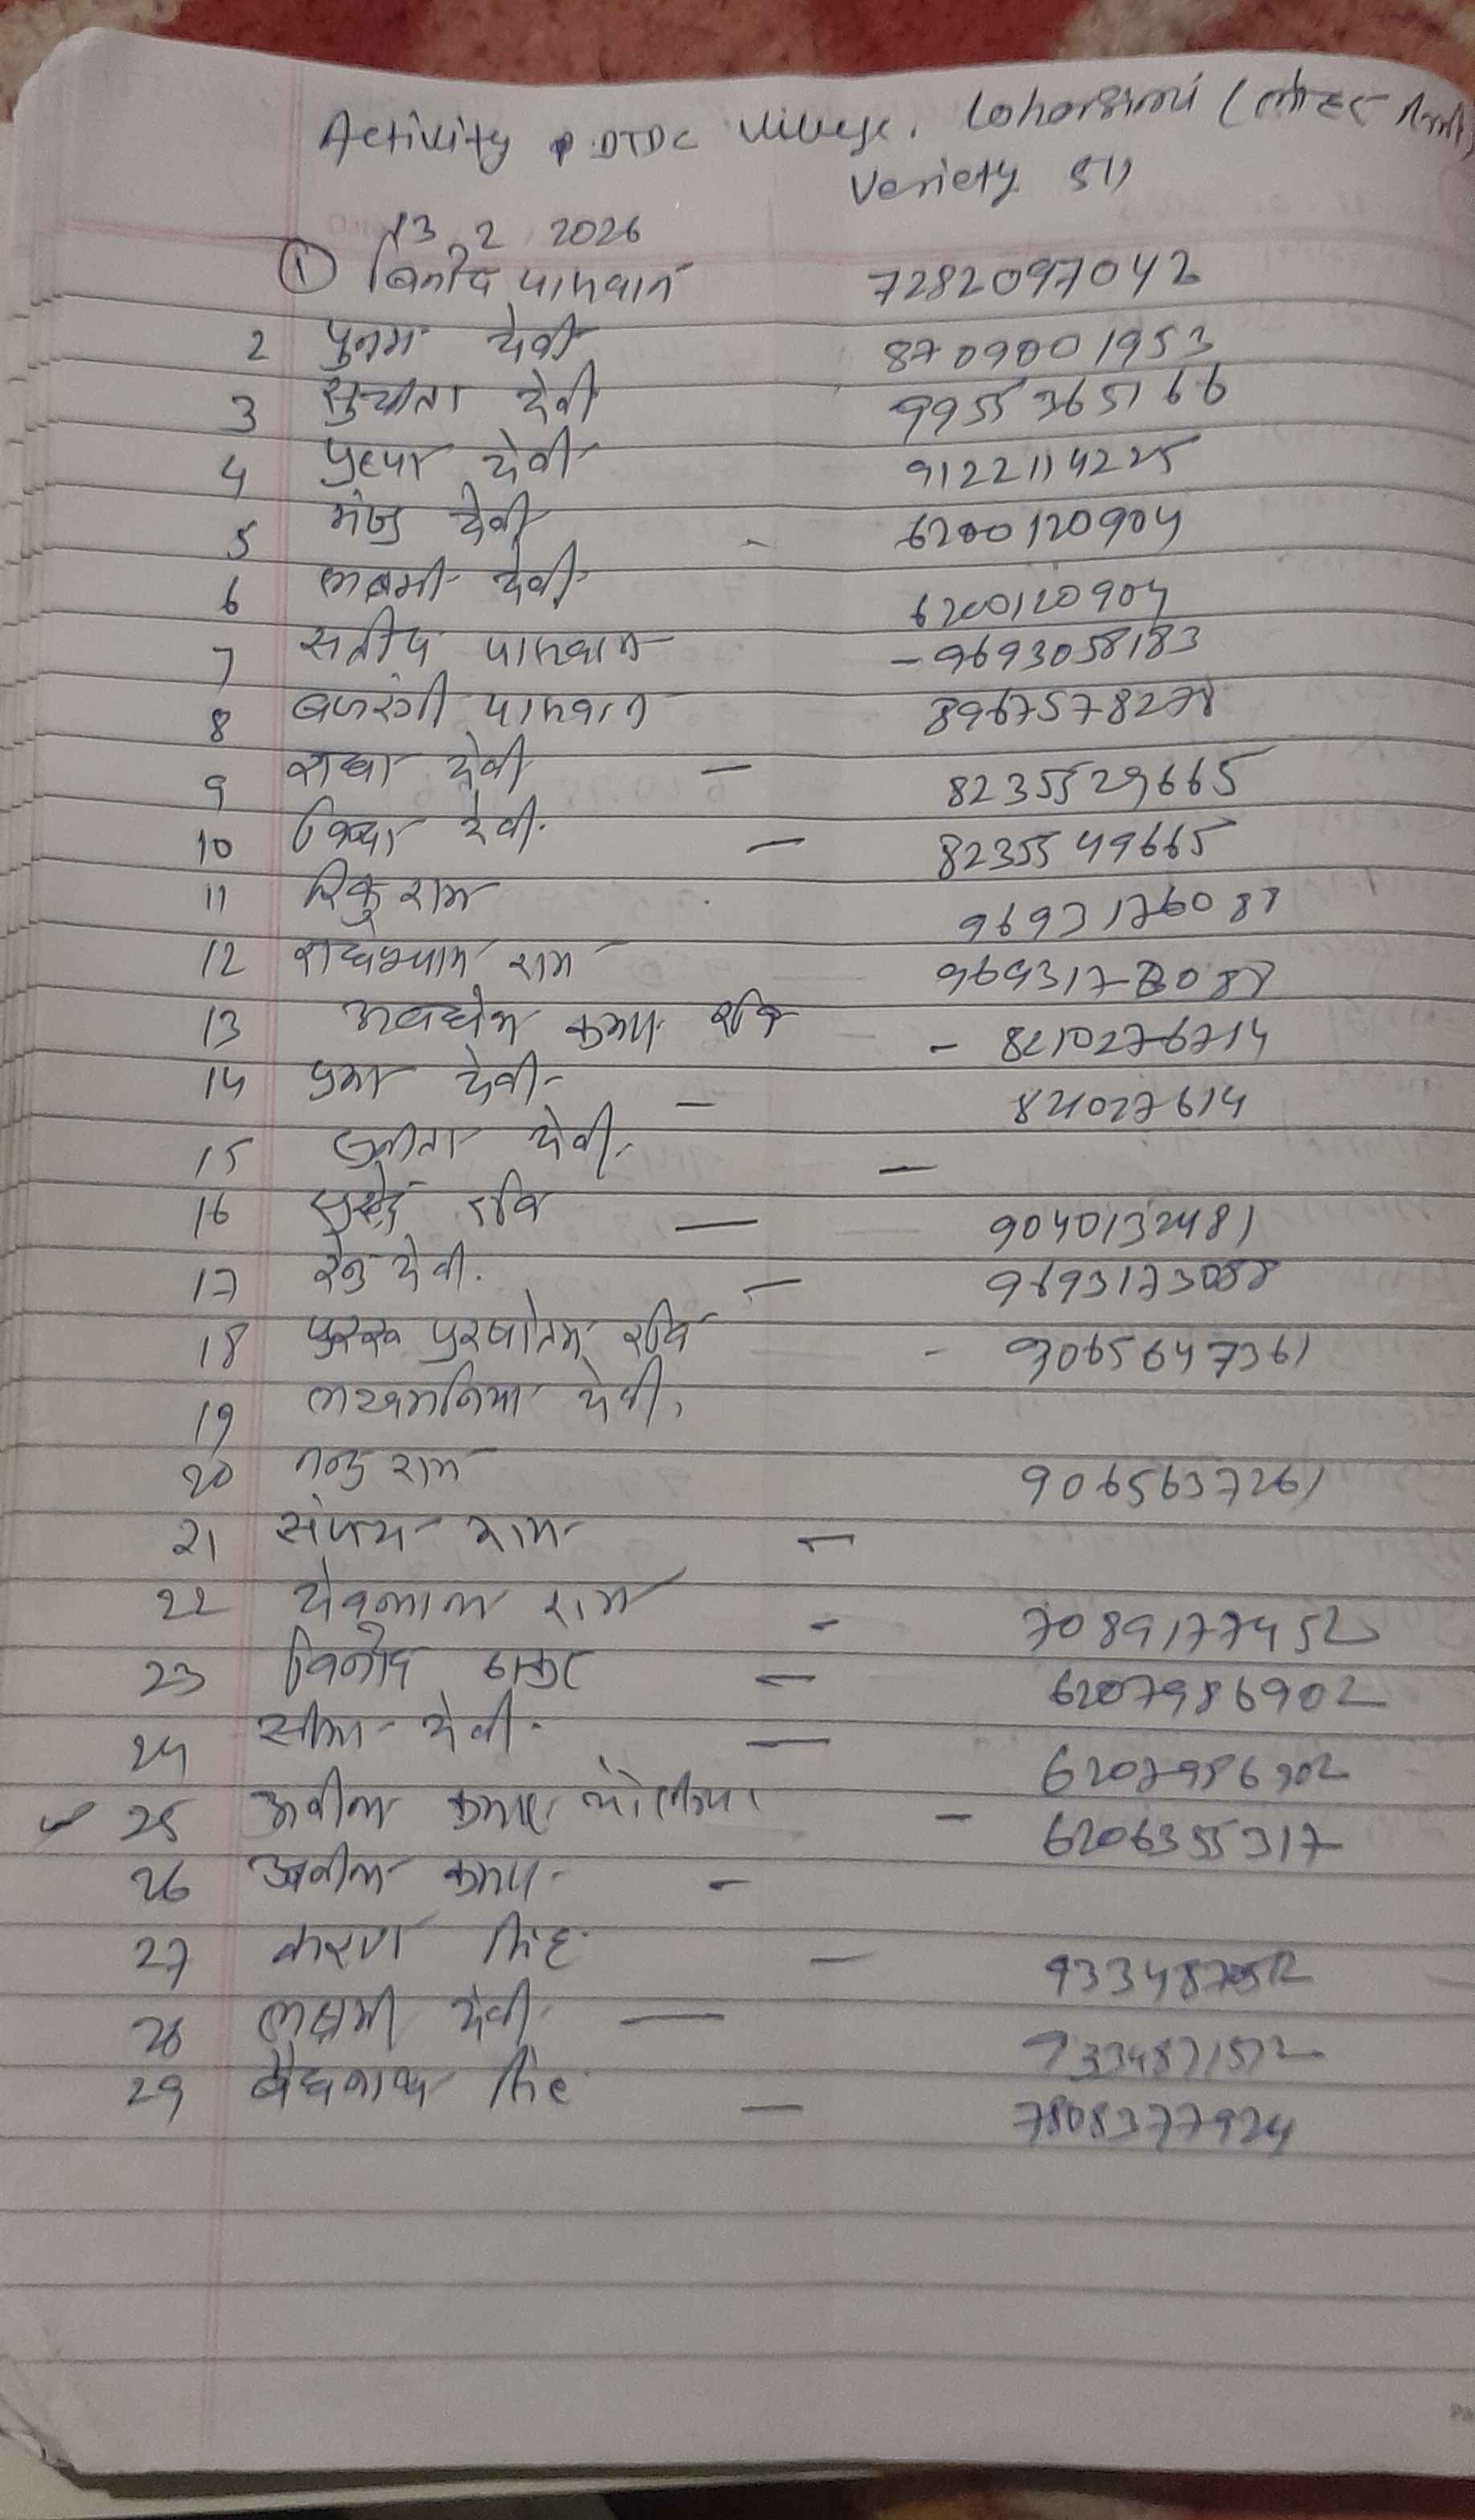 Activity DTDC village. Loharsimi
Variety 511
13.2 2026
① विनोद पासवान 7282097042
2 पुनम देवी 8709001953
3 सुचीता देवी 9955365166
4 पुष्पा देवी 9122114225
5 मंजु देवी - 6200120904
6 लक्ष्मी देवी 6200120904
7 सतीष पासवान - 9693058183
8 बजरंगी पासवान 8967578278
9 राधा देवी - 8235529665
10 देवी - 8235549665
11 रिंकु राम 9693176087
12 राधेश्याम राम
13 अवधेश कुमार रवि - 8210276714
14 प्रभा देवी - 821027614
15 देवी -
16 रवि - 9040132481
17 रेनु देवी. - 9693173088
18 पुरषोतम रवि - 9065647361
19 लखमनिया देवी,
20 नन्दु राम 9065637261
21 संजय राम -
22 देवलाल राम - 7089177452
23 विनोद ठाकुर - 6207986902
24 सीमा देवी. - 6207986902
25 कुमार - 6206355317
26 कुमार -
27 करण सिंह -
28 लक्ष्मी देवी - 9334871572
29 बैधनाथ सिंह - 7808377924